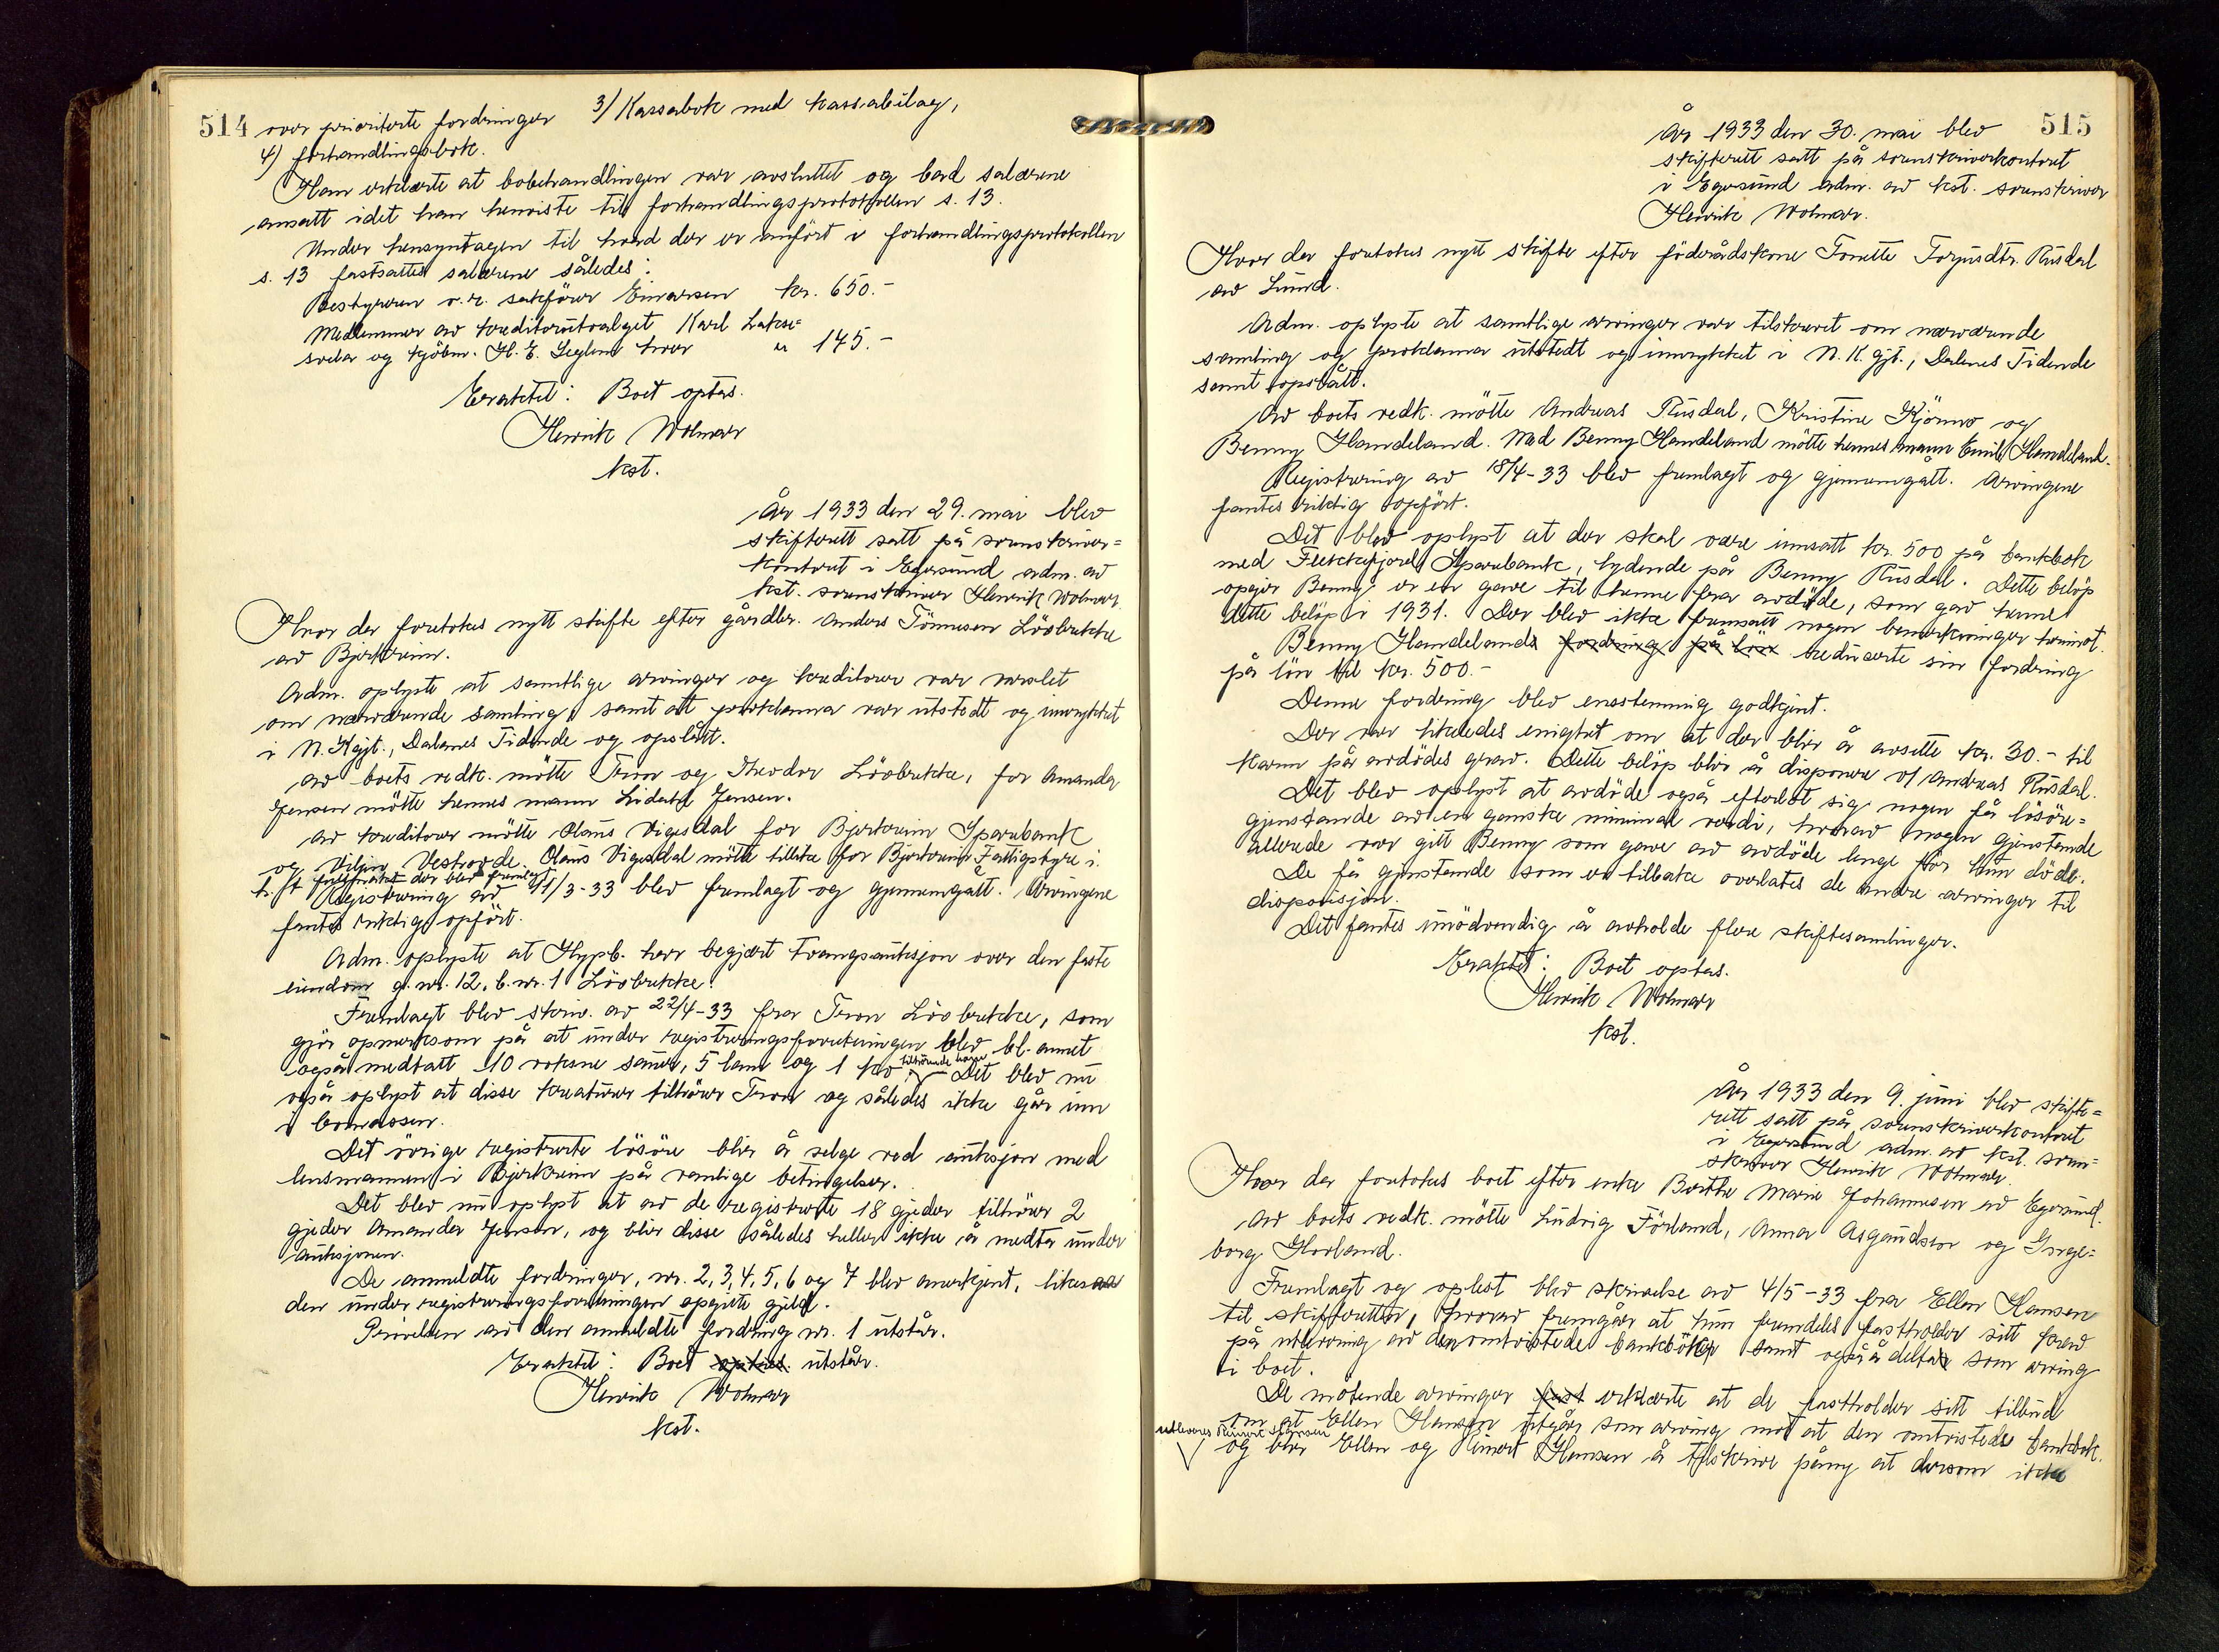 514
over prioriterte fordringer 3/ Kassabok med kassabilag,
4) forhandlingsbok.
Han erklærte at bobehandlingen var avsluttet og bad salærene
ansatt idet han henviste til forhandlingsprotokollen s. 13.
Under hensyntagen til hvad der er anført i forhandlingsprotokollen
s. 13 fastsattes salærene således:
Bestyreren o.r. sakfører Einarsen kr. 650.-
Medlemmer av kreditorutvalget Karl Lakse-
svela og kjøbm. H. E. Seglem hver " 145.-
Eraktet: Boet optas.
Henrik Wolmar
kst.
År 1933 den 29. mai blev
skifterett satt på sorenskriver=
kontoret i Egersund adm. av
kst. sorenskriver Henrik Wolmar.
Hvor der foretokes nytt skifte efter gårdbr. Anders Tønnesen Løvbrekke
av Bjerkreim.
Adm. oplyste at samtlige arvinger og kreditorer var varslet
om nærværende samling, samt att proklama var utstedt og innrykket
i N. Kgjt., Dalanes Tidende og opslått.
Av boets vedk. møtte Tron og Theodor Løvbrekke, for Amanda
Jensen møtte hennes mann Lidahl Jensen.
Av kreditorer møtte Olaus Vigesdal for Bjerkreim Sparebank
og Viljen Vestrovde. Olaus Vigesdal møtte tillike for Bjerkreim Fattigstyre i
h. ft fullmakt der blev fremlagt
Registrering av 11/3-33 blev fremlagt og gjennemgått. Arvingene
fantes riktig opført.
Adm. oplyste at Hypb. har begjært tvangsauksjon over den faste
eiendom g. nr. 12, b. nr. 1 Løvbrekke.
Fremlagt blev skriv. av 22/4-33 fra Tron Løvbrekke, som
gjør opmerksom på at under registreringsforretningen blev bl. annet
også medtatt 10 voksne sauer, 5 lam og 1 ko, tilhørende ham. Det blev nu
også oplyst at disse kreaturer tilhører Tron og således ikke går inn
i bomassen.
Det øvrige registrerte løsøre blir å selge ved auksjon med
lensmannen i Bjerkreim på vanlige betingelser.
Det blev nu oplyst at av de registrerte 18 gjeder tilhører 2
gjeder Amanda Jensen, og blir disse således heller ikke å medta under
auksjonen.
De anmeldte fordringer, nr. 2, 3, 4, 5, 6 og 7 blev anerkjent, likesaa
den under registreringsforretningen opgitte gjeld.
Prøvelsen av den anmeldte fordring nr. 1 utstår.
Eraktet: Boet optas utstår.
Henrik Wolmar
kst.
515
År 1933 den 30. mai blev
skifterett satt på sorenskriverkontoret
i Egersund adm. av kst. sorenskriver
Henrik Wolmar.
Hvor der foretokes nytt skifte efter føderådskone Tonette Torjusdtr. Rusdal
av Lund.
Adm. oplyste at samtlige arvinger var tilskrevet om nærværende
samling og proklama utstedt og innrykket i N. K. gjt., Dalenes Tidende
samt opslått.
Av boets vedk. møtte Andreas Rusdal, Kristine Kjønnø og
Benny Handeland. Med Benny Handeland møtte hennes mann Emil Handeland.
Registrering av 18/4-33 blev fremlagt og gjennemgått. Arvingene
fantes riktig opført.
Det blev oplyst at der skal være innsatt kr. 500 på bankbok
med Flekkefjord Sparebank, lydende på Benny Rusdal. Dette beløp
opgir Benny er en gave til henne fra avdøde, som gav henne
dette beløp i 1931. Der blev ikke fremsatt nogen bemerkninger herimot.
Benny Handelands fordring på lön reduserte sin fordring
på løn til kr. 500.-
Denne fordring blev enstemmig godkjent.
Der var likeledes enighet om at der blir å avsette kr. 30.- til
karm på avdødes grav. Dette beløp blir å disponere v/ Andreas Rusdal.
Det blev oplyst at avdøde også efterlot sig nogen få løsøre=
gjenstande av en ganske minimal verdi, hvorav nogen gjenstande
allerede var gitt Benny som gave av avdøde lenge før hun døde.
De få gjenstande som er tilbake overlates de andre arvinger til
disposisjon.
Det fantes unødvendig å avholde flere skiftesamlinger.
Eraktet: Boet optas.
Henrik Wolmar
kst.
År 1933 den 9. juni blev skifte=
rett satt på sorenskriverkontoret
i Egersund adm. av kst. soren=
skriver Henrik Wolmar.
Hvor der foretokes boet efter enke Berthe Marie Johannesen av Egersund.
Av boets vedk. møtte Ludvig Førland, Anna Asgaudsen og Inge=
borg Hovland.
Fremlagt og oplest blev skrivelse av 4/5-33 fra Ellen Hansen
til skifteretten, hvorav fremgår at hun fremdeles fastholder sitt krav
på utlevering av den omtvistede bankbøker samt også å delta som arving
i boet.
De møtende arvinger fast erklærte at de fastholder sitt tilbud
om at Ellen Hansen utgår som arving mot at den omtvistede bankbok
utleveres Reinert Hansen
og blir Ellen og Reinert Hansen å tilskrive påny at dersom ikke